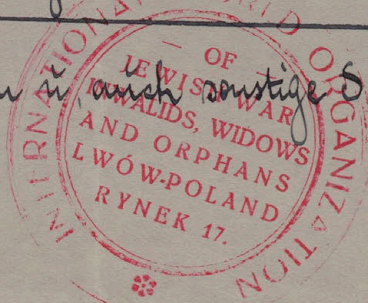 INTERNATIONAL WORLD ORGANIZATION
OF
JEWISH WAR
INVALIDS, WIDOWS
AND ORPHANS
LWÓW-POLAND
RYNEK 17.
auch sonstige